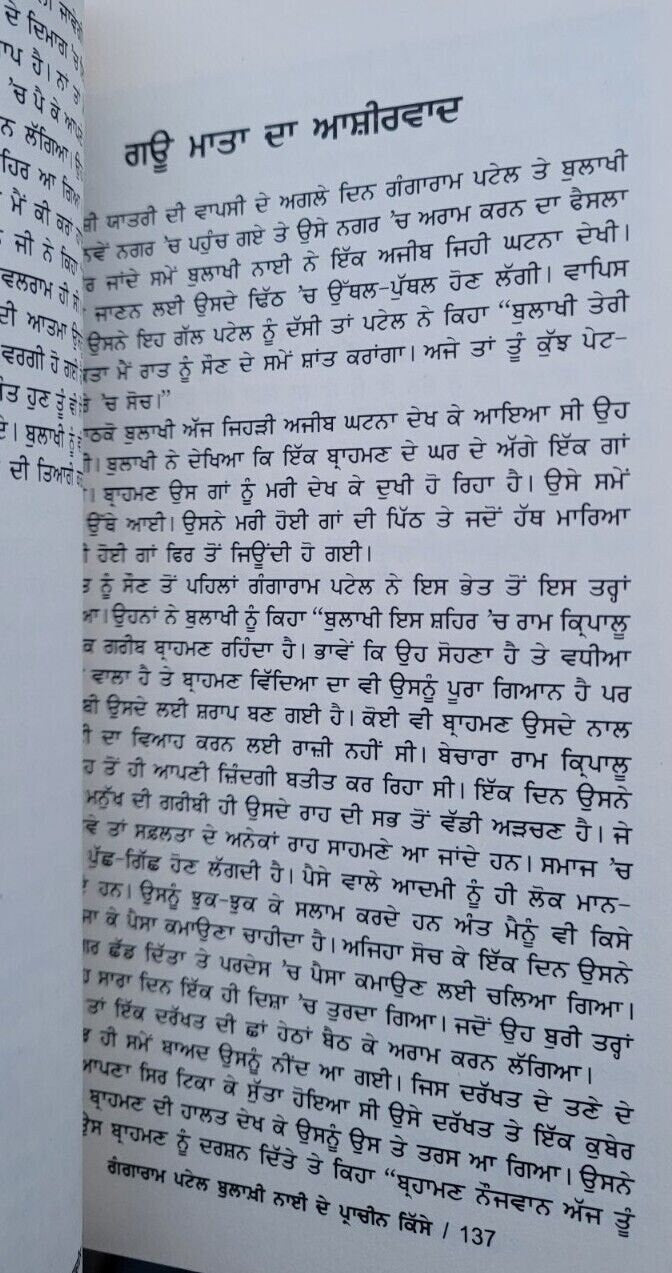 ਦੇ ਦਿਮਾਗ 'ਚ
ਹੈ। ਨਾਂ ਤਾਂ
'ਚ ਪੈ ਕੇ
ਲੱਗਿਆ।
ਆ ਗਿਆ
ਮੈਂ ਕੀ ਕਰਾਂ
ਜੀ ਨੇ ਕਿਹਾ
ਹੀ
ਦੀ ਆਤਮਾ
ਵਰਗੀ ਹੋ ਗਈ
ਹੁਣ ਤੂੰ
ਬੁਲਾਖੀ ਨੂੰ
ਦੀ ਤਿਆਰੀ
ਗਊ ਮਾਤਾ ਦਾ ਆਸ਼ੀਰਵਾਦ
ਯਾਤਰੀ ਦੀ ਵਾਪਸੀ ਦੇ ਅਗਲੇ ਦਿਨ ਗੰਗਾਰਾਮ ਪਟੇਲ ਤੇ ਬੁਲਾਖੀ
ਨਵੇਂ ਨਗਰ 'ਚ ਪਹੁੰਚ ਗਏ ਤੇ ਉਸੇ ਨਗਰ 'ਚ ਅਰਾਮ ਕਰਨ ਦਾ ਫੈਸਲਾ
ਜਾਂਦੇ ਸਮੇਂ ਬੁਲਾਖੀ ਨਾਈ ਨੇ ਇੱਕ ਅਜੀਬ ਜਿਹੀ ਘਟਨਾ ਦੇਖੀ।
ਜਾਣਨ ਲਈ ਉਸਦੇ ਢਿੱਠ 'ਚ ਉੱਥਲ-ਪੁੱਥਲ ਹੋਣ ਲੱਗੀ। ਵਾਪਿਸ
ਉਸਨੇ ਇਹ ਗੱਲ ਪਟੇਲ ਨੂੰ ਦੱਸੀ ਤਾਂ ਪਟੇਲ ਨੇ ਕਿਹਾ “ਬੁਲਾਖੀ ਤੇਰੀ
ਮੈਂ ਰਾਤ ਨੂੰ ਸੌਣ ਦੇ ਸਮੇਂ ਸ਼ਾਂਤ ਕਰਾਂਗਾ। ਅਜੇ ਤਾਂ ਤੂੰ ਕੁੱਝ ਪੇਟ-
'ਚ ਸੋਚ।”
ਬੁਲਾਖੀ ਅੱਜ ਜਿਹੜੀ ਅਜੀਬ ਘਟਨਾ ਦੇਖ ਕੇ ਆਇਆ ਸੀ ਉਹ
ਬੁਲਾਖੀ ਨੇ ਦੇਖਿਆ ਕਿ ਇੱਕ ਬ੍ਰਾਹਮਣ ਦੇ ਘਰ ਦੇ ਅੱਗੇ ਇੱਕ ਗਾਂ
ਬ੍ਰਾਹਮਣ ਉਸ ਗਾਂ ਨੂੰ ਮਰੀ ਦੇਖ ਕੇ ਦੁਖੀ ਹੋ ਰਿਹਾ ਹੈ। ਉਸੇ ਸਮੇਂ
ਉੱਥੇ ਆਈ। ਉਸਨੇ ਮਰੀ ਹੋਈ ਗਾਂ ਦੀ ਪਿੱਠ ਤੇ ਜਦੋਂ ਹੱਥ ਮਾਰਿਆ
ਹੋਈ ਗਾਂ ਫਿਰ ਤੋਂ ਜਿਊਂਦੀ ਹੋ ਗਈ।
ਨੂੰ ਸੌਣ ਤੋਂ ਪਹਿਲਾਂ ਗੰਗਾਰਾਮ ਪਟੇਲ ਨੇ ਇਸ ਭੇਤ ਤੋਂ ਇਸ ਤਰ੍ਹਾਂ
ਉਹਨਾਂ ਨੇ ਬੁਲਾਖੀ ਨੂੰ ਕਿਹਾ “ਬੁਲਾਖੀ ਇਸ ਸ਼ਹਿਰ 'ਚ ਰਾਮ ਕ੍ਰਿਪਾਲੂ
ਗਰੀਬ ਬ੍ਰਾਹਮਣ ਰਹਿੰਦਾ ਹੈ। ਭਾਵੇਂ ਕਿ ਉਹ ਸੋਹਣਾ ਹੈ ਤੇ ਵਧੀਆ
ਵਾਲਾ ਹੈ ਤੇ ਬ੍ਰਾਹਮਣ ਵਿੱਦਿਆ ਦਾ ਵੀ ਉਸਨੂੰ ਪੂਰਾ ਗਿਆਨ ਹੈ ਪਰ
ਉਸਦੇ ਲਈ ਸ਼ਰਾਪ ਬਣ ਗਈ ਹੈ। ਕੋਈ ਵੀ ਬ੍ਰਾਹਮਣ ਉਸਦੇ ਨਾਲ
ਦਾ ਵਿਆਹ ਕਰਨ ਲਈ ਰਾਜ਼ੀ ਨਹੀਂ ਸੀ। ਬੇਚਾਰਾ ਰਾਮ ਕ੍ਰਿਪਾਲੂ
ਤੋਂ ਹੀ ਆਪਣੀ ਜ਼ਿੰਦਗੀ ਬਤੀਤ ਕਰ ਰਿਹਾ ਸੀ। ਇੱਕ ਦਿਨ ਉਸਨੇ
ਮਨੁੱਖ ਦੀ ਗਰੀਬੀ ਹੀ ਉਸਦੇ ਰਾਹ ਦੀ ਸਭ ਤੋਂ ਵੱਡੀ ਅੜਚਣ ਹੈ। ਜੇ
ਤਾਂ ਸਫ਼ਲਤਾ ਦੇ ਅਨੇਕਾਂ ਰਾਹ ਸਾਹਮਣੇ ਆ ਜਾਂਦੇ ਹਨ। ਸਮਾਜ 'ਚ
ਪੁੱਛ-ਗਿੱਛ ਹੋਣ ਲੱਗਦੀ ਹੈ। ਪੈਸੇ ਵਾਲੇ ਆਦਮੀ ਨੂੰ ਹੀ ਲੋਕ ਮਾਨ-
ਹਨ। ਉਸਨੂੰ ਝੁਕ-ਝੁਕ ਕੇ ਸਲਾਮ ਕਰਦੇ ਹਨ ਅੰਤ ਮੈਨੂੰ ਵੀ ਕਿਸੇ
ਕੇ ਪੈਸਾ ਕਮਾਉਣਾ ਚਾਹੀਦਾ ਹੈ। ਅਜਿਹਾ ਸੋਚ ਕੇ ਇੱਕ ਦਿਨ ਉਸਨੇ
ਛੱਡ ਦਿੱਤਾ ਤੇ ਪਰਦੇਸ 'ਚ ਪੈਸਾ ਕਮਾਉਣ ਲਈ ਚਲਿਆ ਗਿਆ।
ਸਾਰਾ ਦਿਨ ਇੱਕ ਹੀ ਦਿਸ਼ਾ 'ਚ ਤੁਰਦਾ ਗਿਆ। ਜਦੋਂ ਉਹ ਬੁਰੀ ਤਰ੍ਹਾਂ
ਤਾਂ ਇੱਕ ਦਰੱਖਤ ਦੀ ਛਾਂ ਹੇਠਾਂ ਬੈਠ ਕੇ ਅਰਾਮ ਕਰਨ ਲੱਗਿਆ।
ਹੀ ਸਮੇਂ ਬਾਅਦ ਉਸਨੂੰ ਨੀਂਦ ਆ ਗਈ। ਜਿਸ ਦਰੱਖਤ ਦੇ ਤਣੇ ਦੇ
ਆਪਣਾ ਸਿਰ ਟਿਕਾ ਕੇ ਸੁੱਤਾ ਹੋਇਆ ਸੀ ਉਸੇ ਦਰੱਖਤ ਤੇ ਇੱਕ ਕੁਬੇਰ
ਬ੍ਰਾਹਮਣ ਦੀ ਹਾਲਤ ਦੇਖ ਕੇ ਉਸਨੂੰ ਉਸ ਤੇ ਤਰਸ ਆ ਗਿਆ। ਉਸਨੇ
ਉਸ ਬ੍ਰਾਹਮਣ ਨੂੰ ਦਰਸ਼ਨ ਦਿੱਤੇ ਤੇ ਕਿਹਾ “ਬ੍ਰਹਾਮਣ ਨੌਜਵਾਨ ਅੱਜ ਤੂੰ
ਗੰਗਾਰਾਮ ਪਟੇਲ ਬੁਲਾਖ਼ੀ ਨਾਈ ਦੇ ਪ੍ਰਾਚੀਨ ਕਿੱਸੇ / 137